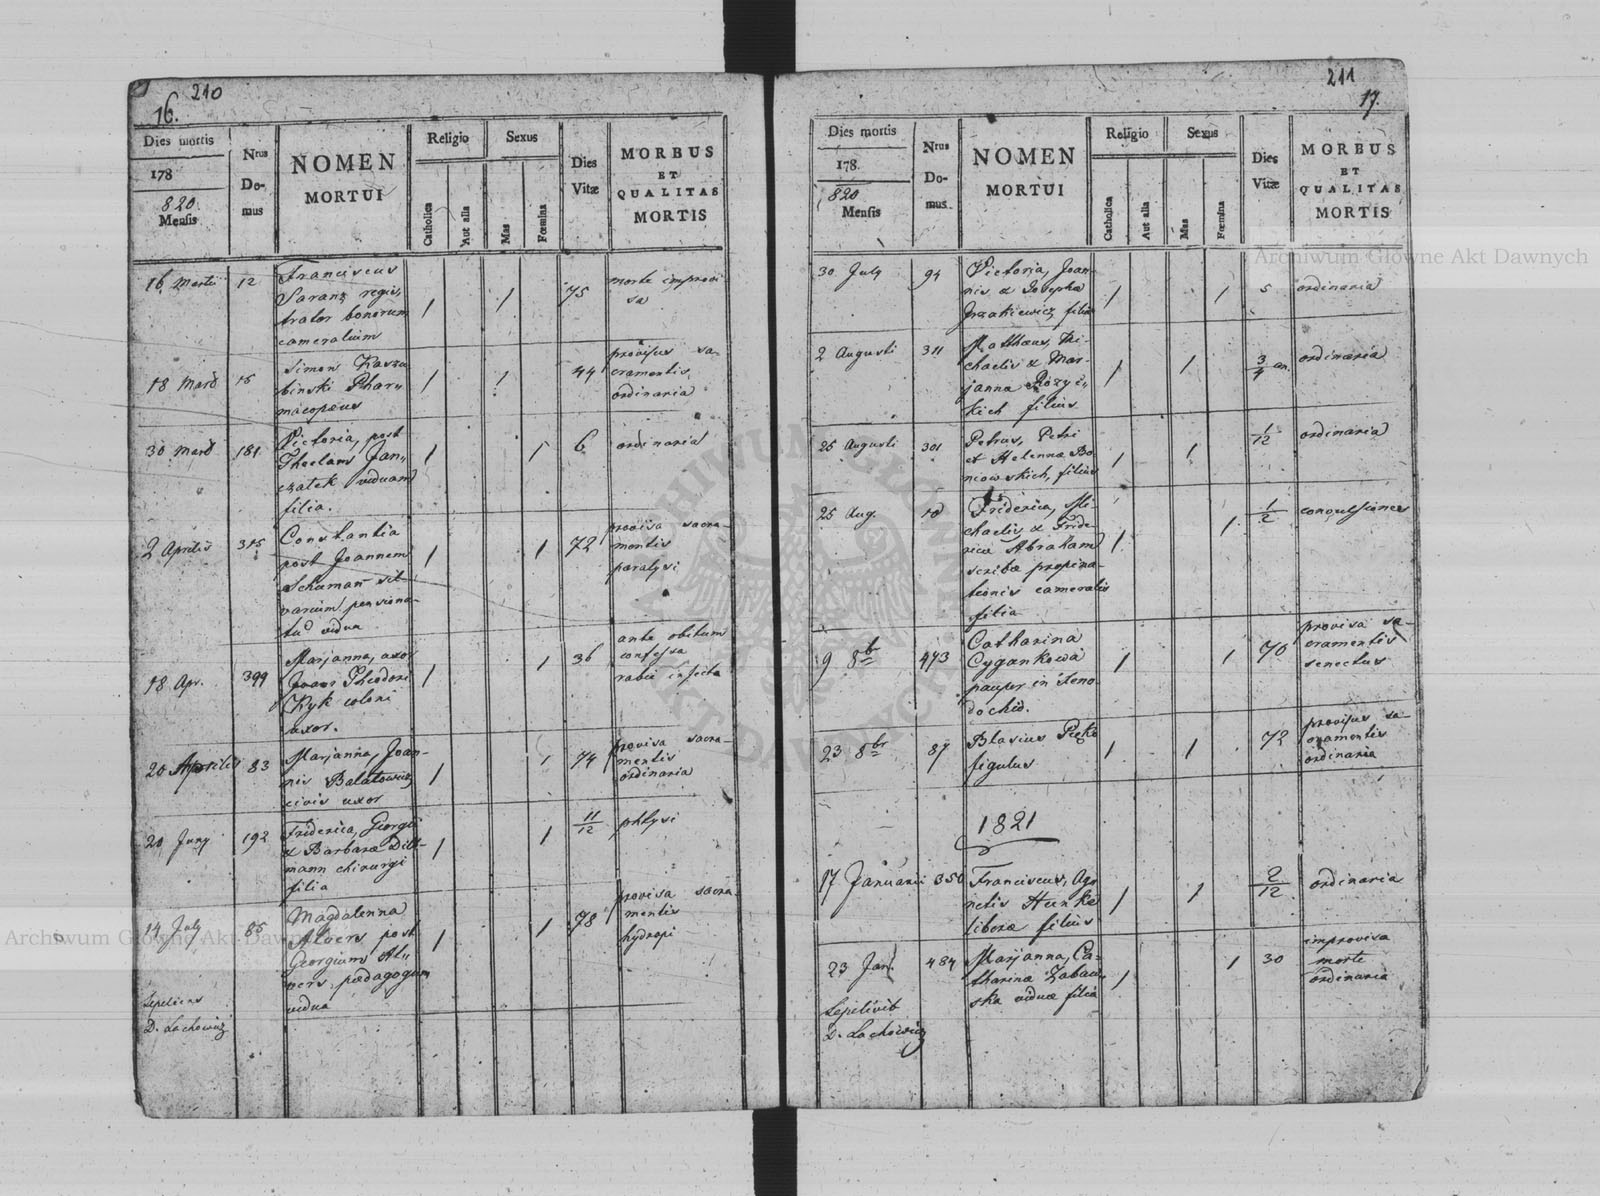 210
16.
Dies mortis
178
820
Mensis
Nrus
Do-
mus
NOMEN
MORTUI
Religio
Catholica
Aut alia
Sexus
Mas
Fœmina
Dies
Vitæ
MORBUS
ET
QUALITAS
MORTIS
16. Martii 12
Franciscus
Saranz regis,,
trator bonorum
cameralium
1 1 75
morte improvi
sa
18 Martii 15
Simon Kaszu
binski Phar,,
macopæus
1 1 44
provisus sa-
cramentis
ordinaria
30 Martii 181
Victoria, post
Theclam Jan,,
czatek viduam
filia.
1 1 6
ordinaria
2 Aprilis 315
Constantia
post Joannem
Schuman sil
varum pensiona-
tu vidua
1 1 72
provisa sacra-
mentis
paralysi
18 Apr. 399
Marjanna, uxor
Theodori
Kyk coloni
uxor.
1 1 36
ante obitum
confessa
rabie infecta
20 Aprilis 83
Marjanna, Joan-
nis Balatowicz
civis uxor
1 1 74
provisa sacra-
mentis
ordinaria
20 Juny 192
Friderica, Georgii
et Barbaræ Ditt-
mann chirurgi
filia
1 1 11/12
phtysi
14 July 85
Magdalenna
Alvers post
Georgium Al,,
vers pædagogum
vidua
1 1 78
provisa sacra
mentis
hydropi
Sepeliens
D. Lachowicz
211
17.
Dies mortis
178.
820
Mensis
Nrus
Do-
mus.
NOMEN
MORTUI
Religio
Catholica
Aut alia
Sexus
Mas
Fœmina
Dies
Vitæ
MORBUS
ET
QUALITAS
MORTIS
30 July 94
Victoria, Joan-
nis et Josepha
filia
1 1 5
ordinaria
2 Augusti 311
Matthæus, Mi-
chaelis et Mar-
janna Rózyc-
kich filius
1 1 3/4 an.
ordinæria
25 Augusti 301
Petrus, Petri
et Helennæ Bo
niowskich, filius
1 1 1/12
ordinaria
25 Aug. 10
Friderica, Mi-
chaelis et Fride-
ricæ Abraham
scribæ propina-
tionis cameralis
filia
1 1 1/2
convulsiones
9 8br 473
Catharina
Cygankowa
pauper in Xeno-
dochio.
1 1 70
provisa sa-
cramentis
senectus
23 8br 87
Blasius Piątka
figulus
1 1 72
provisus sa-
cramentis
ordinaria
1821
17 Januarii 350
Franciscus, Ag-
netis Hunke
liberæ filius
1 1 2/12
ordinaria
23 Jan. 484
Marjanna, Ca-
tharinæ Zabaw,,
ska viduæ filia
1 1 30
improvisa
morte
ordinaria
Sepelivit
D. Lachowicz
Archiwum Główne Akt Dawnych
Archiwum Główne Akt Dawnych
ARCHIWUM GŁÓWNE AKT DAWNYCH